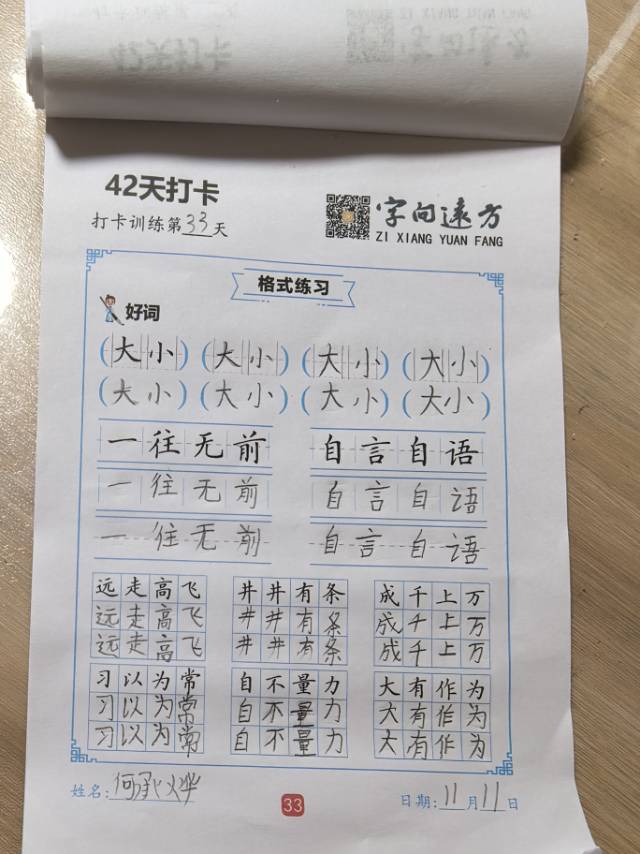 42天打卡
打卡训练第33天
字向远方
ZI XIANG YUAN FANG
格式练习
好词
(大小) (大小) (大小) (大小)
(大小) (大小) (大小) (大小)
一往无前 自言自语
一往无前 自言自语
一往无前 自言自语
远走高飞 井井有条 成千上万
远走高飞 井井有条 成千上万
远走高飞 井井有条 成千上万
习以为常 自不量力 大有作为
习以为常 自不量力 大有作为
习以为常 自不量力 大有作为
姓名:何承烨 33 日期:11月11日